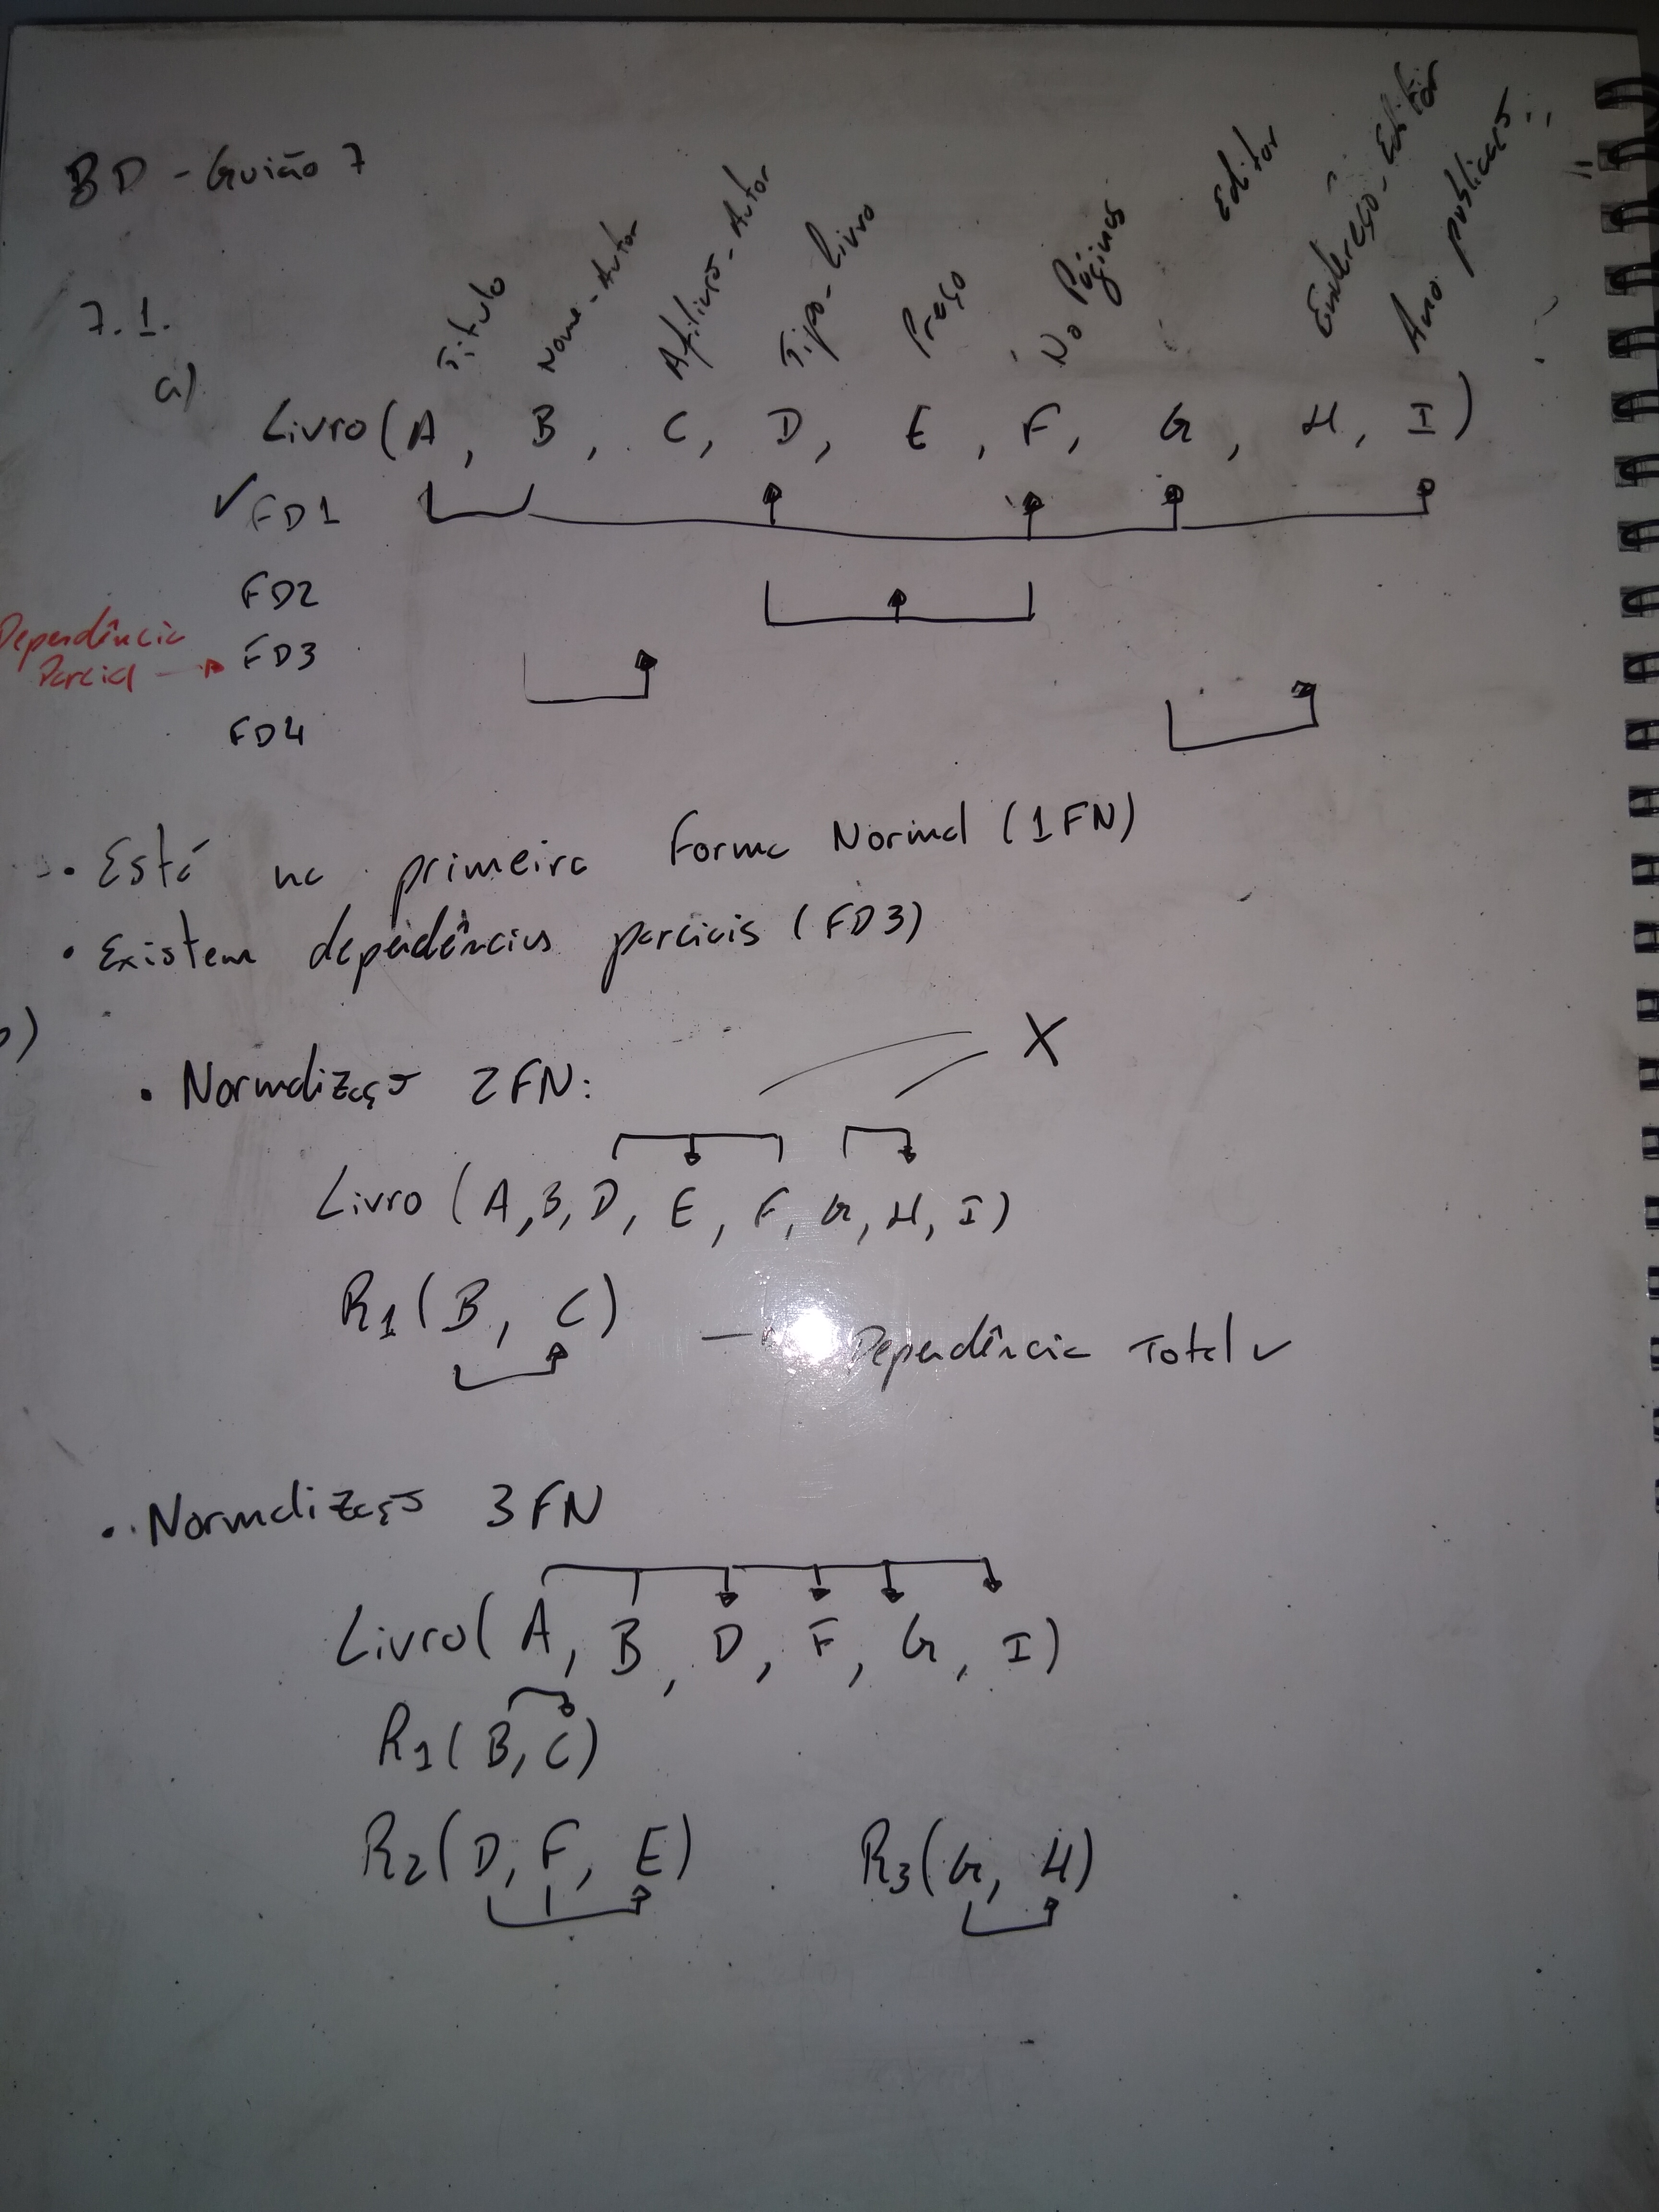 BD - Guião 7
7.1.
a)
Titulo Nome-Autor Afiliação-Autor Tipo-Livro Preço No Páginas Editor Endereço-Editor Ano publicação
Livro (A, B, C, D, E, F, G, H, I)
✓ FD1
FD2
Dependência
Parcial → FD3
FD4
• Está na primeira Forma Normal (1FN)
• Existem dependências parciais (FD3)
b)
X
• Normalização 2FN:
Livro (A, B, D, E, F, G, H, I)
R1 (B, C) → Dependência Total ✓
• Normalização 3FN
Livro (A, B, D, F, G, I)
R1 (B, C)
R2 (D, F, E) R3 (G, H)